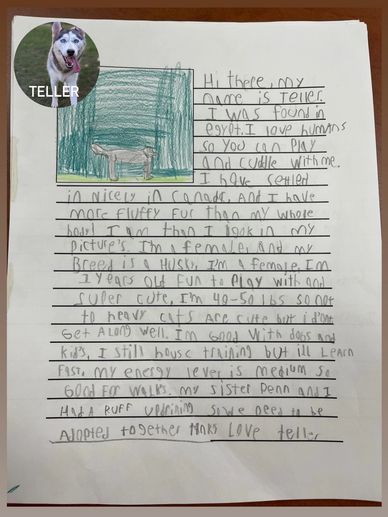 TELLER
Hi there, my
name is Teller.
I was found in
egypt. I love humans
so you can play
and cuddle with me.
I have settled
in nicely in Canada, And I have
more fluffy fur than my whole
body! I am than I look in my
picture's. I'm a female, and my
Breed is a Husky, I'm a female, Im
1 years old fun to play with and
super cute, I'm 40-50 lbs so not
to heavy cats are cute but i don't
Get Along well. Im Good with dogs and
kids, I still house training but ill Learn
fast, my energy lever is medium so
Good for walks. my sister Penn and I
Had a Ruff upbrining so we need to be
Adopted together thaks Love teller